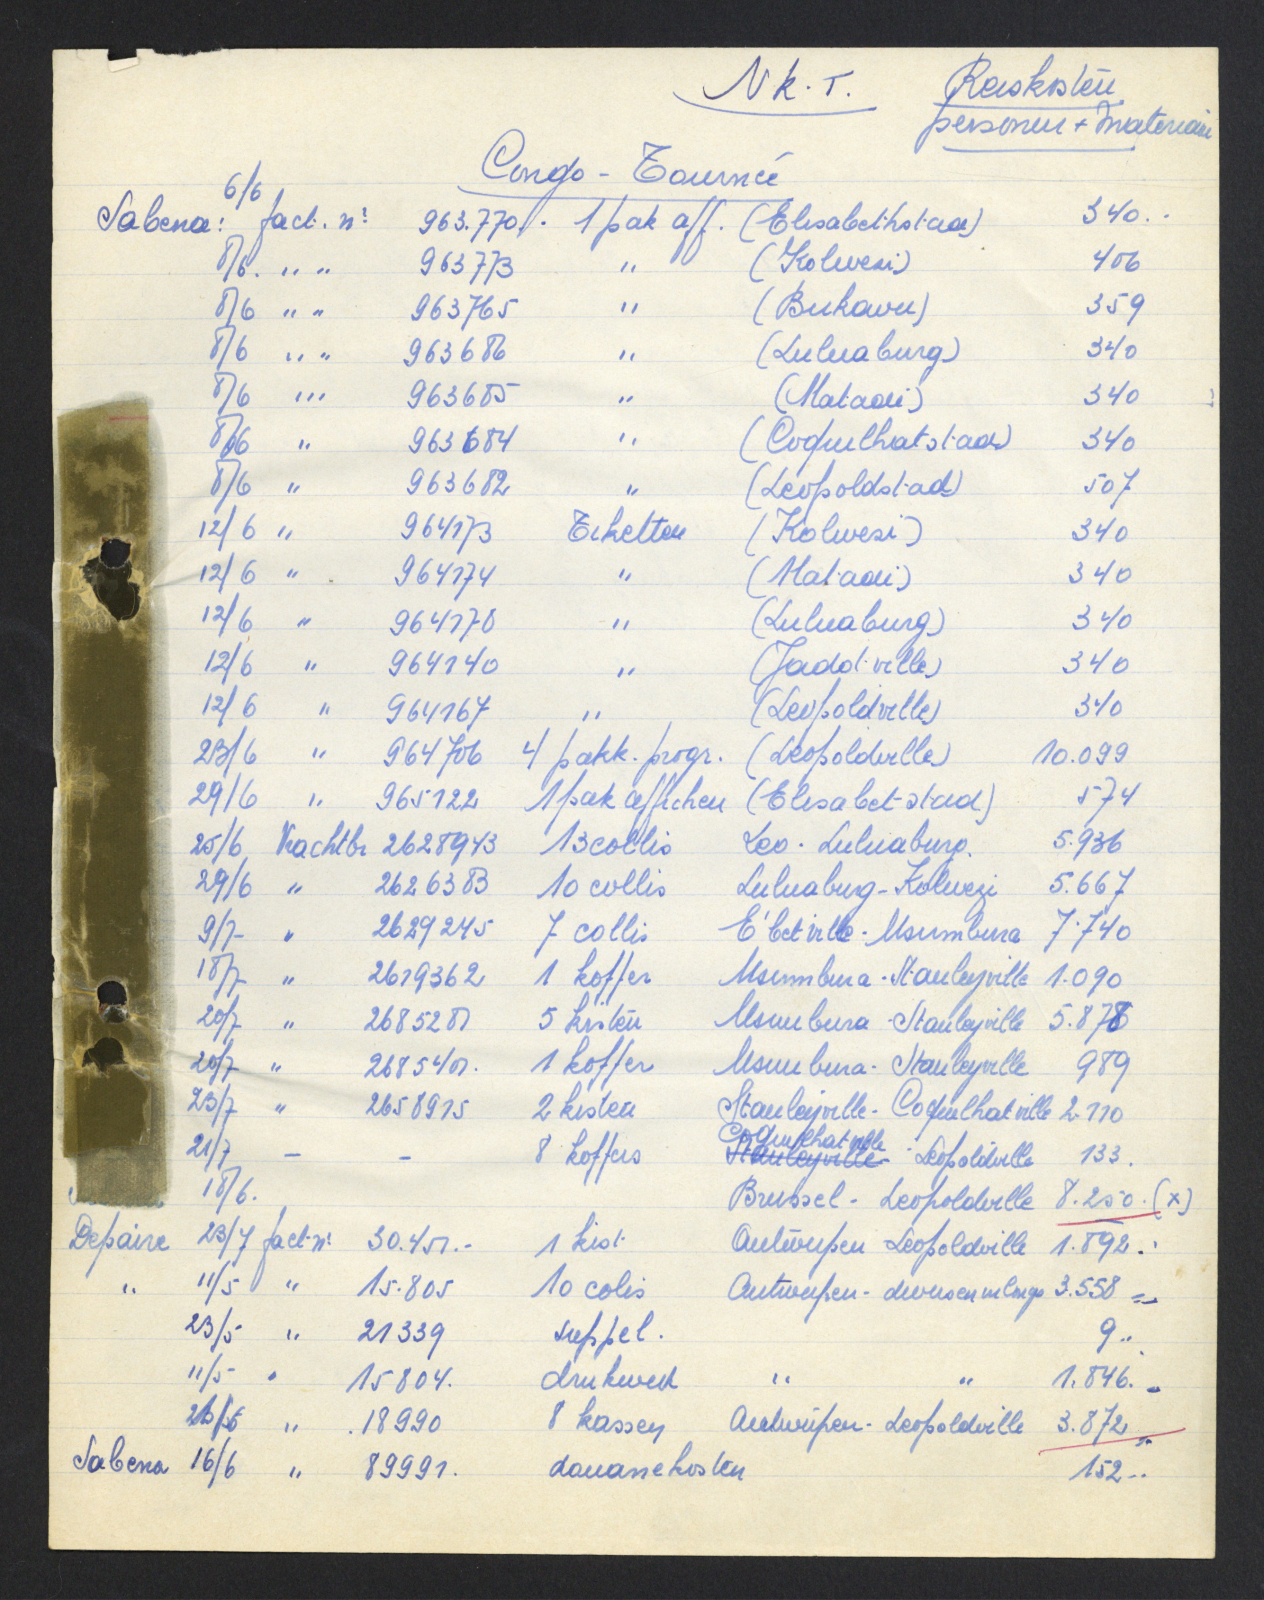 N k. T. Reiskosten
personen + materiaal
Congo - Tournée
6/6
Sabena: fact. nr 963.770. 1 pak aff. (Elisabethstad) 340.-
8/6. " " 963773 " (Kolwezi) 406
8/6 " " 963765 " (Bukavu) 359
8/6 " " 963686 " (Luluaburg) 340
8/6 " " 963685 " (Matadi) 340
8/6 " 963684 " (Coquilhatstad) 340
8/6 " 963682 " (Leopoldstad) 507
12/6 " 964173 Etiketten (Kolwezi) 340
12/6 " 964174 " (Matadi) 340
12/6 " 964178 " (Luluaburg) 340
12/6 " 964140 " (Jadotville) 340
12/6 " 964167 " (Leopoldville) 340
23/6 " 964706 4 pakk. progr. (Leopoldville) 10.099
29/6 " 965122 1 pak affichen (Elisabet-stad) 574
25/6 Vrachtbr 2628943 13 collis Leo - Luluaburg. 5.936
29/6 " 2626383 10 collis Luluaburg - Kolwezi 5.667
9/7 " 2629245 7 collis E'betville - Usumbura 7.740
18/7 " 2619362 1 koffer Usumbura - Stanleyville 1.090
20/7 " 2685281 5 kisten Usumbura - Stanleyville 5.878
20/7 " 268540. 1 koffer Usumbura - Stanleyville 989
23/7 " 2658915 2 kisten Stanleyville - Coquilhatville 2.110
Coquilhatville
21/7 - - 8 koffers Stanleyville - Leopoldville 133.
18/6. Brussel - Leopoldville 8.250. (x)
Depaire 23/7 fact. nr 30.451.- 1 kist Antwerpen Leopoldville 1.892.-
" 11/5 " 15.805 10 colis Antwerpen - 3.558 =
23/5 " 21339 suppel. 9..
11/5 " 15804. drukwerk " " 1.846.-
" 18990 8 kassen Antwerpen - Leopoldville 3.872
Sabena 16/6 " 89991. douanekosten 152..